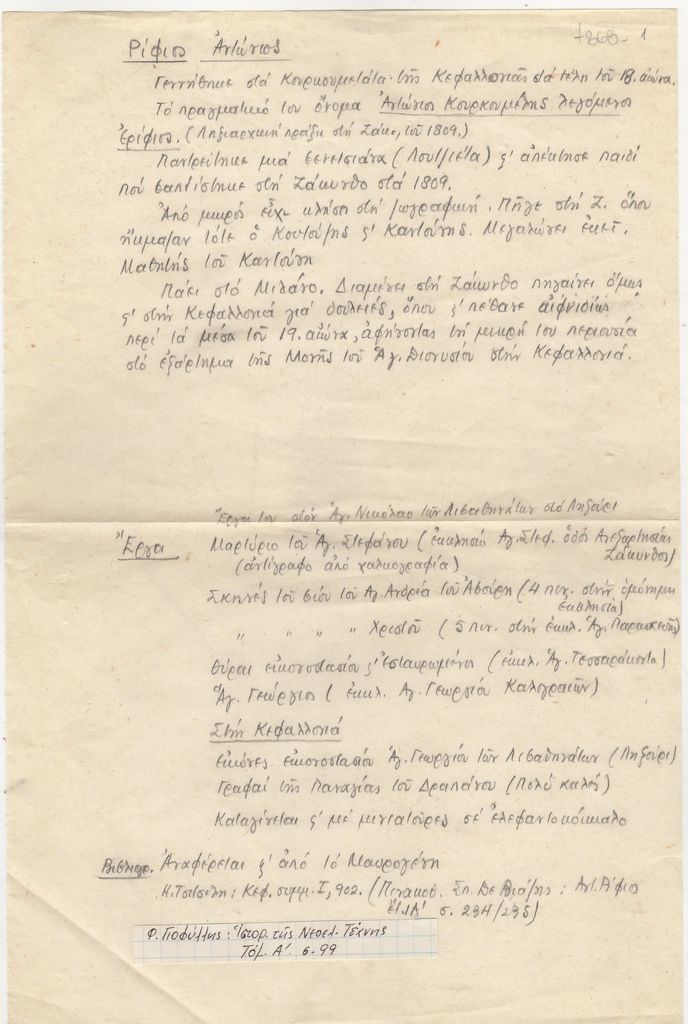 +868- 1
Ρίφιος Ἀντώνιος
Γεννήθηκε στά Κουρκουμελάτα τῆς Κεφαλλονιᾶς στά τέλη τοῦ 18. αἰώνα.
Τό πραγματικό του ὄνομα Ἀντώνιος Κουρκουμέλης λεγόμενος
Ἐρίφιος. (Ληξιαρχική πράξη στή Ζάκ. τοῦ 1809.)
Παντρεύτηκε μιά Βενετσιάνα (Λουτζιέτα) ϛ' ἀπέκτησε παιδί
πού βαπτίστηκε στή Ζάκυνθο στά 1809.
Ἀπό μικρός εἶχε κλήση στή ζωγραφική. Πῆγε στή Ζ. ὅπου
ἤκμαζαν τότε ὁ Κουτούζης ϛ' Καντούνης. Μεγαλώνει ἐκεῖ.
Μαθητής τοῦ Καντούνη
Πάει στό Μιλάνο. Διαμένει στή Ζάκυνθο πηγαίνει ὅμως
ϛ' στήν Κεφαλλονιά γιά δουλειές, ὅπου ϛ' πέθανε αἰφνιδίως
περί τά μέσα τοῦ 19. αἰώνα, ἀφήνοντας τή μικρή του περιουσία
στό ἐξάρτημα τῆς Μονῆς τοῦ Ἁγ. Διονυσίου στήν Κεφαλλονιά.
Ἔργα του στόν Ἁγ. Νικόλαο τῶν Λιβαθηνάτων στό Ληξούρι
Ἔργα Μαρτύριο τοῦ Ἁγ. Στεφάνου (ἐκκλησία Ἁγ. Στεφ. ὁδός Ανεξαρτησίας
Ζάκυνθος)
(ἀντίγραφο ἀπό χαλκογραφία)
Σκηνές τοῦ βίου τοῦ Ἁγ. Ἀνδρέα τοῦ Ἀβούρη (4 πιν. στήν ὁμόνημη
ἐκκλησία)
" " " " Χριστοῦ (5 πιν. στήν ἐκκλ. Ἁγ. Παρασκευῆς)
Θύραι εἰκονοστασίου ϛ' Ἐσταυρωμένος (ἐκκλ. Ἁγ. Τεσσαράκοντα)
Ἁγ. Γεώργιος (ἐκκλ. Ἁγ. Γεωργίου Καλογραιῶν)
Στήν Κεφαλλονιά
εἰκόνες εἰκονοστασίου Ἁγ. Γεωργίου τῶν Λιβαθηνάτων (Ληξούρι)
Γραφαί τῆς Παναγίας τοῦ Δραπάνου (Πολύ καλές)
Καταγίνεται ϛ' μέ μινιατοῦρες σέ ἐλεφαντοκόκκαλο
Βιβλιογρ. Ἀναφέρεται ϛ' ἀπό τό Μαυρογένη
Η. Τσιτσέλη: Κεφ. συμμ. I, 902. (Πινακοθ. Σπ. Δε Βιάζης: Ἀντ. Ρίφιος
ἔτ. ΙΑ' σ. 234/235)
Φ. Γιοφύλλης: Ἱστορ. τῆς Νεοελ. Τέχνης
Τόμ. Α' σ. 99